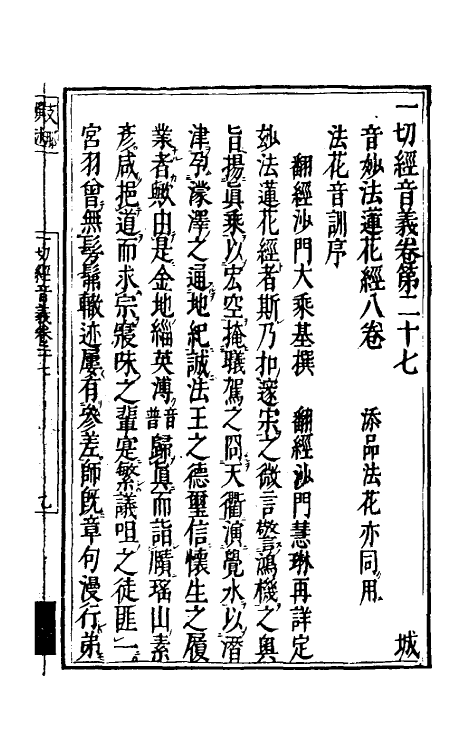 一切經音義卷第二十七　城
音妙法蓮花經八卷　添品法花亦同用
法花音訓序
翻經沙門大乘基撰　翻經沙門慧琳再詳定
妙法蓮花經者斯乃扣邃宗之微言警鴻機之奧
旨揚真乘以宏空掩驥駕之冏天衢演覺水以潛
津孕濛澤之逼地紀誠法王之德璽信懷生之履
業者歟由是金地緇英溥音普歸真而詣賾瑤山素
彥咸挹道而求宗寢味之輩寔繁議咀之徒匪一
宮羽曾無髣髴轍迹屢有參差師旣章句漫行弟
一切經音義卷二十七